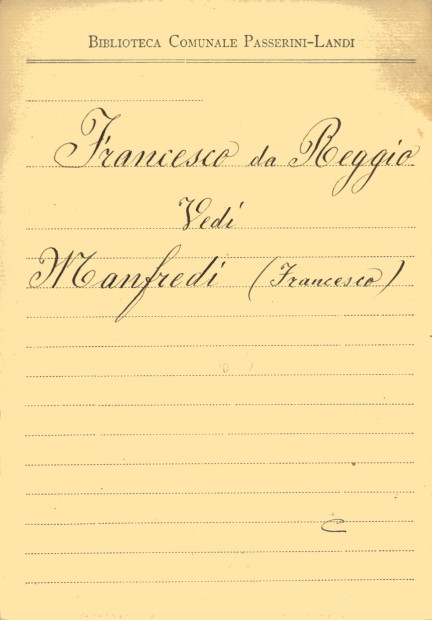 Biblioteca Comunale Passerini-Landi
Francesco da Reggio
Vedi
Manfredi (Francesco)
C